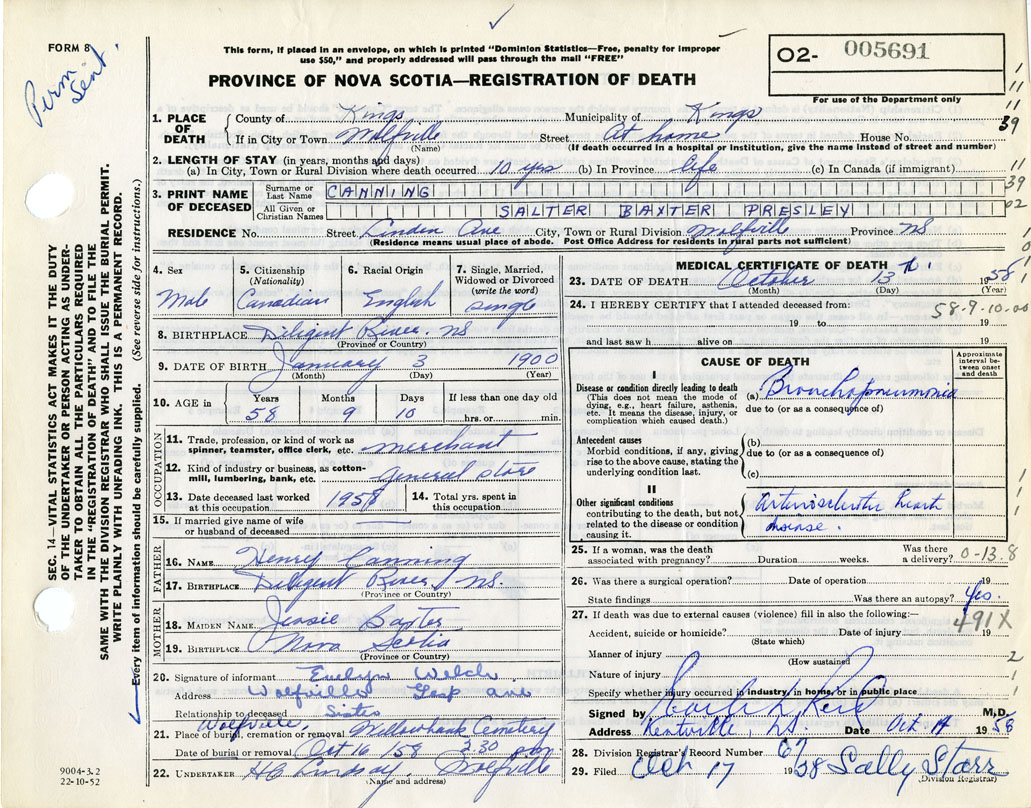 FORM 8
Perm Sent.
This form, if placed in an envelope, on which is printed "Dominion Statistics—Free, penalty for improper
use $50," and properly addressed will pass through the mail "FREE"
PROVINCE OF NOVA SCOTIA—REGISTRATION OF DEATH
02- 005691
For use of the Department only
1. PLACE OF DEATH County of Kings Municipality of Kings
If in City or Town Wolfville Street At home House No.
(Name) (If death occurred in a hospital or institution, give the name instead of street and number)
39
2. LENGTH OF STAY (in years, months and days)
(a) In City, Town or Rural Division where death occurred 10 yrs (b) In Province life (c) In Canada (if immigrant)
11
3. PRINT NAME OF DECEASED Surname or Last Name CANNING
39
All Given or Christian Names SALTER BAXTER PRESLEY
02
RESIDENCE No. Street Linden Ave City, Town or Rural Division Wolfville Province NS
(Residence means usual place of abode. Post Office Address for residents in rural parts not sufficient)
4. Sex Male
5. Citizenship (Nationality) Canadian
6. Racial Origin English
7. Single, Married, Widowed or Divorced (write the word) single
8. BIRTHPLACE Diligent River, NS
(Province or Country)
9. DATE OF BIRTH January 3 1900
(Month) (Day) (Year)
10. AGE in Years 58 Months 9 Days 10 If less than one day old hrs. or min.
OCCUPATION
11. Trade, profession, or kind of work as spinner, teamster, office clerk, etc. merchant
12. Kind of industry or business, as cotton-mill, lumbering, bank, etc. general store
13. Date deceased last worked at this occupation 1958
14. Total yrs. spent in this occupation
15. If married give name of wife or husband of deceased
FATHER
16. NAME Henry Canning
17. BIRTHPLACE Diligent River, NS.
(Province or Country)
MOTHER
18. MAIDEN NAME Jessie Baxter
19. BIRTHPLACE Nova Scotia
(Province or Country)
20. Signature of informant Evelyn Welch
Address Wolfville Gasp Ave
Relationship to deceased Sister
21. Place of burial, cremation or removal Wolfville, Willowbank Cemetery
Date of burial or removal Oct 16/58 2.30 pm
22. UNDERTAKER HC Lindsay, Wolfville
(Name and address)
MEDICAL CERTIFICATE OF DEATH
23. DATE OF DEATH October 13 1958
(Month) (Day) (Year)
24. I HEREBY CERTIFY that I attended deceased from:
58-9-10.00
19 to 19
and last saw h alive on 19
CAUSE OF DEATH
Approximate interval between onset and death
I
Disease or condition directly leading to death
(This does not mean the mode of dying, e.g., heart failure, asthenia, etc. It means the disease, injury, or complication which caused death.)
(a) Bronchopneumonia
due to (or as a consequence of)
Antecedent causes
Morbid conditions, if any, giving rise to the above cause, stating the underlying condition last.
(b)
due to (or as a consequence of)
(c)
II
Other significant conditions
contributing to the death, but not related to the disease or condition causing it.
Arteriosclerotic heart
disease.
25. If a woman, was the death associated with pregnancy? Duration weeks. Was there a delivery?
0-13.8
26. Was there a surgical operation? Date of operation 19
State findings Was there an autopsy? Yes.
27. If death was due to external causes (violence) fill in also the following:—
491X
Accident, suicide or homicide? Date of injury 19
(State which)
Manner of injury
(How sustained
Nature of injury
Specify whether injury occurred in industry, in home, or in public place
Signed by M.D.
Address Kentville, NS. Date Oct. 14 1958
28. Division Registrar's Record Number 67
29. Filed Oct 17 1958 Sally Starr
(Division Registrar)
SEC. 14—VITAL STATISTICS ACT MAKES IT THE DUTY
OF THE UNDERTAKER OR PERSON ACTING AS UNDER-
TAKER TO OBTAIN ALL THE PARTICULARS REQUIRED
IN THE "REGISTRATION OF DEATH" AND TO FILE THE
SAME WITH THE DIVISION REGISTRAR WHO SHALL ISSUE THE BURIAL PERMIT.
WRITE PLAINLY WITH UNFADING INK. THIS IS A PERMANENT RECORD.
Every item of information should be carefully supplied. (See reverse side for instructions.)
9004-3.2
22-10-52